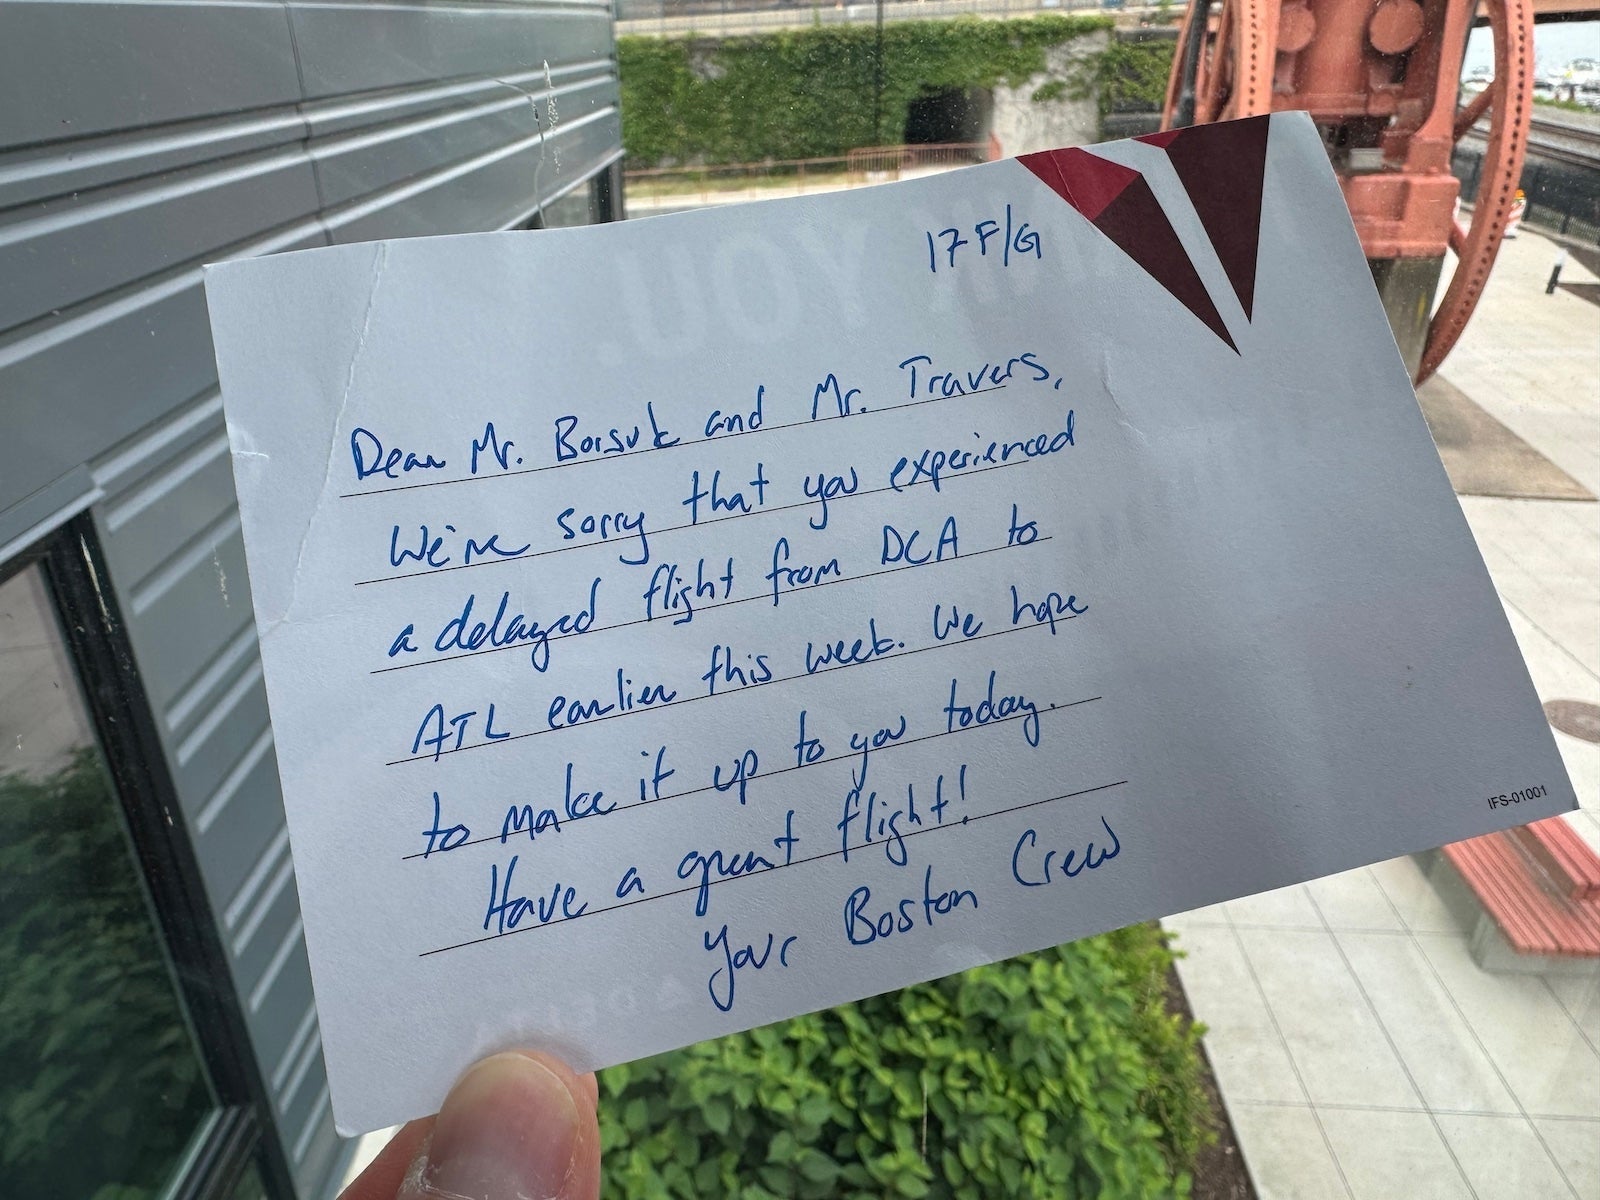 17 F/G
Dear Mr. Borsuk and Mr. Travers,
We're sorry that you experienced
a delayed flight from DCA to
ATL earlier this week. We hope
to make it up to you today.
Have a great flight!
Your Boston Crew
IFS-01001